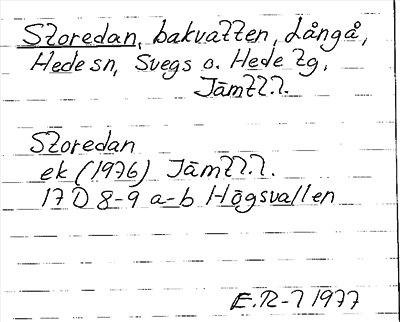 Storedan, bakvatten, Långå,
Hede sn, Svegs o. Hede tg,
Jämtl.l.
Storedan
ek (1976) Jämtl.l.
17 D 8-9 a-b Högsvallen
E.R-l 1977